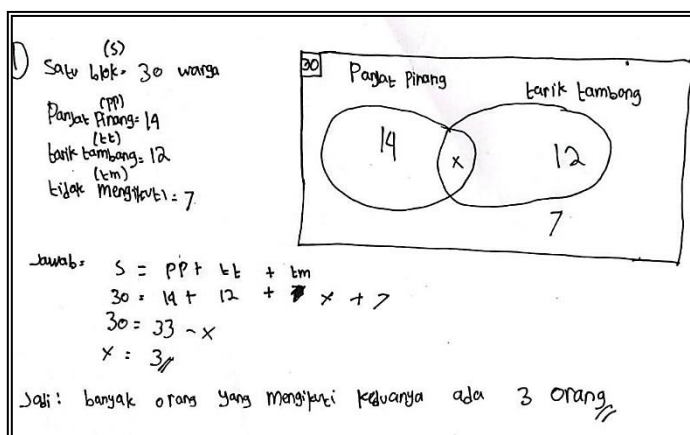 1)
(S)
Satu blok = 30 warga
(PP)
Panjat Pinang = 14
(tt)
tarik tambang = 12
(tm)
tidak mengikuti = 7
30
Panjat Pinang
tarik tambang
14
x
12
7
Jawab =
S = PP + tt + tm
30 = 14 + 12 + x + 7
30 = 33 - x
x = 3
Jadi : banyak orang yang mengikuti keduanya ada 3 orang